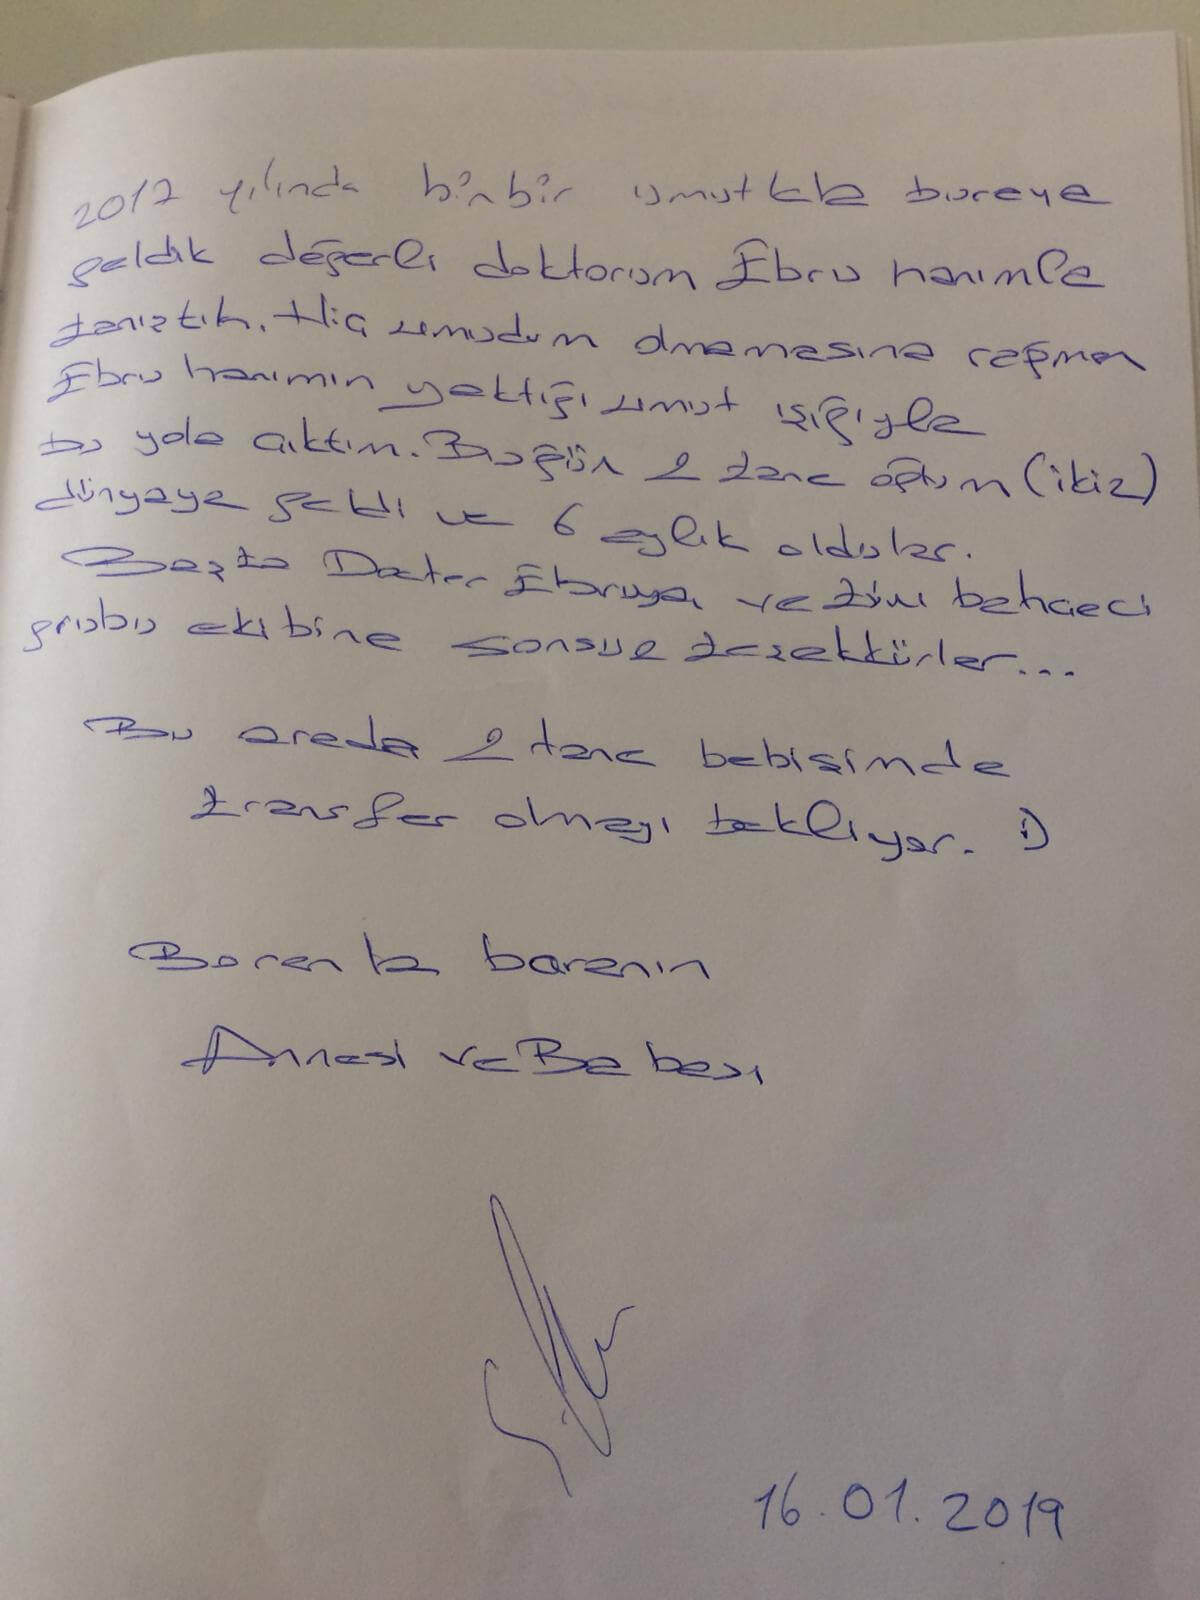 2017 yılında binbir umutkla buraya
geldik değerli doktorum Ebru hanımla
tanıştık. Hiç umudum olmamasına rağmen
Ebru hanımın yaktığı umut ışığıyla
bu yola çıktım. Bugün 2 tane oğlum (ikiz)
dünyaya geldi ve 6 aylık oldular.
Başta Docter Ebruya ve tüm bahçeci
grubu ekibine sonsuz teşekkürler...
Bu arada 2 tane bebişimde
transfer olmayı bekliyor. :)
Boran la baranın
Annesi ve Babası
16.01.2019